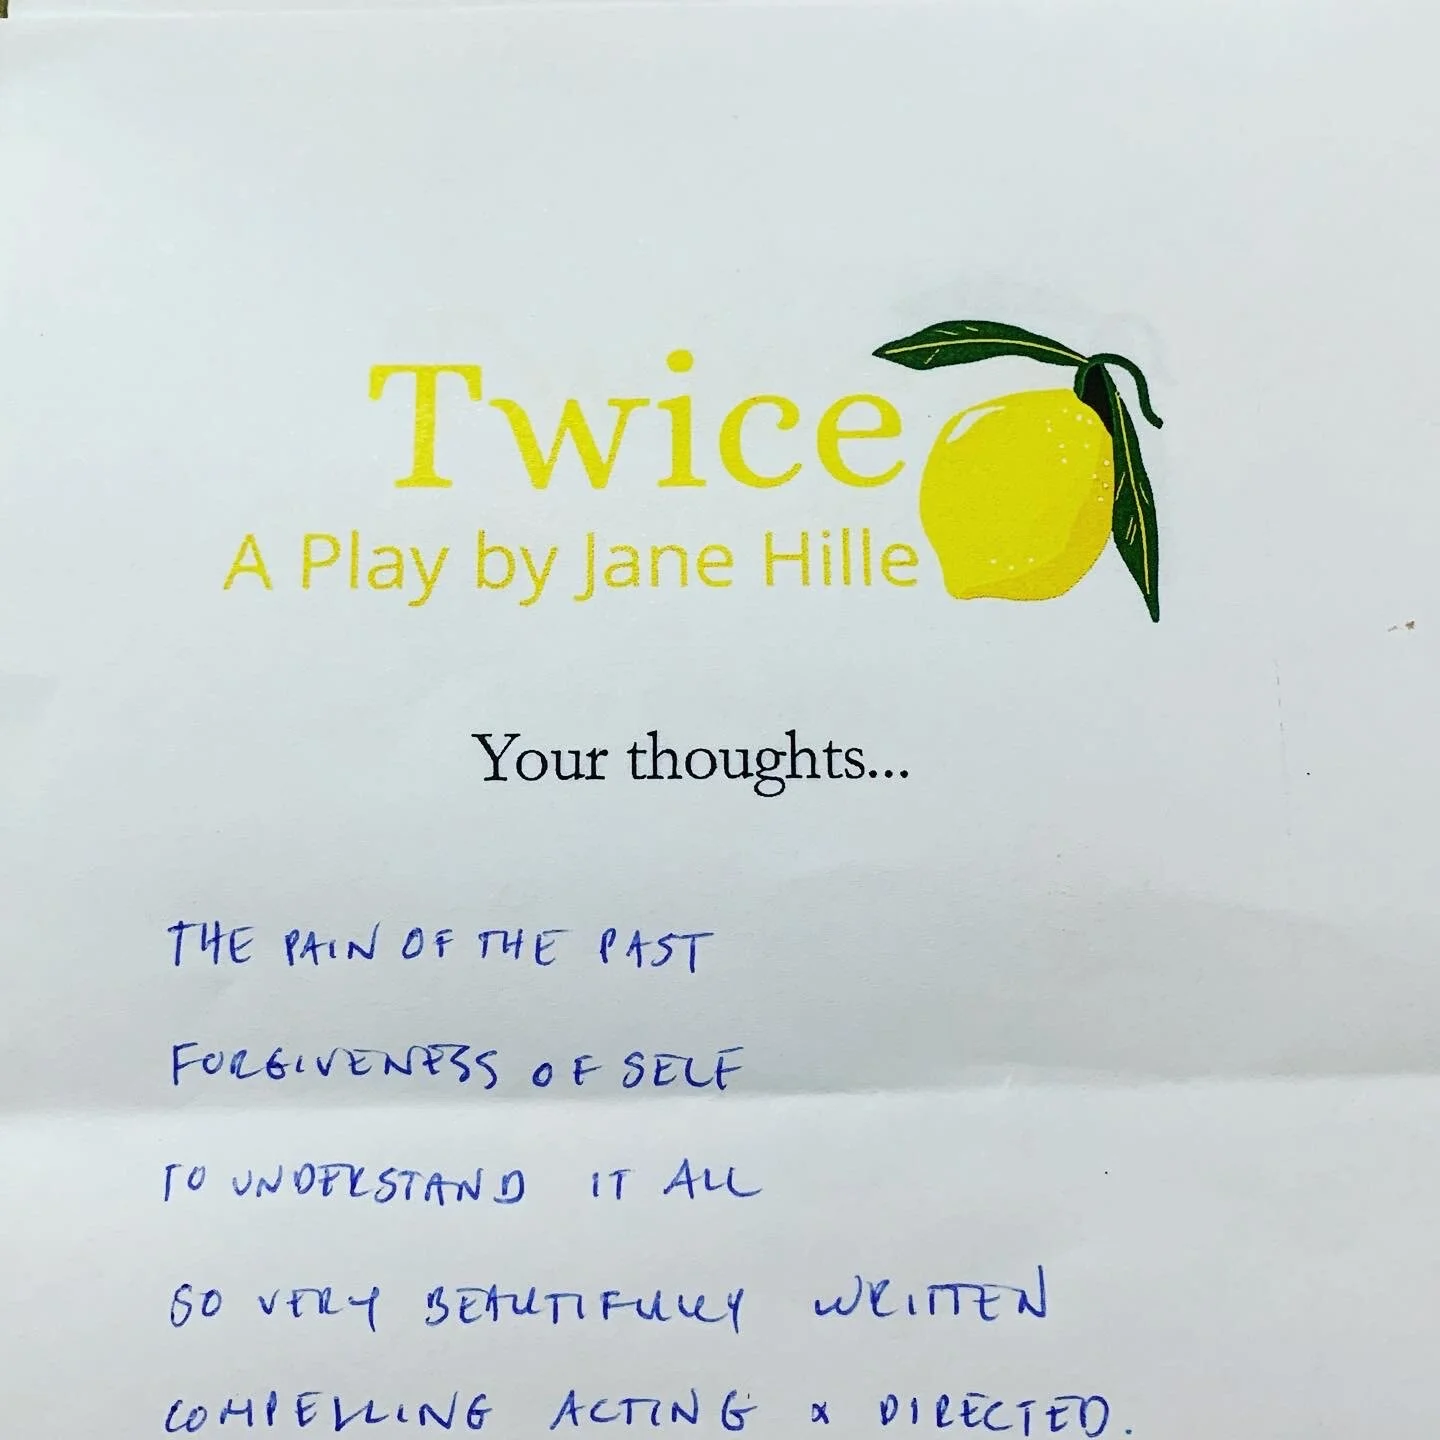 Twice
A Play by Jane Hille
Your thoughts...
THE PAIN OF THE PAST
FORGIVENESS OF SELF
TO UNDERSTAND IT ALL
SO VERY BEAUTIFULLY WRITTEN
COMPELLING ACTING & DIRECTED.